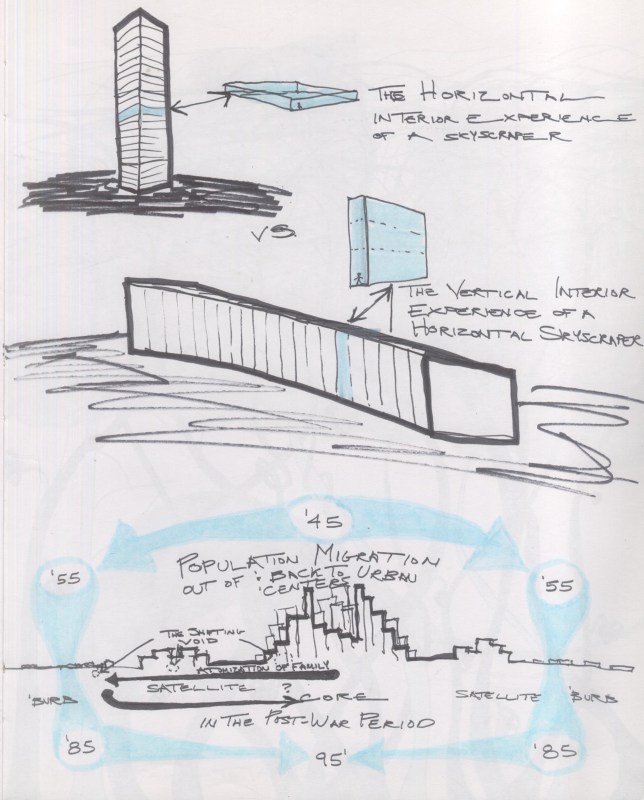 THE HORIZONTAL
INTERIOR EXPERIENCE
OF A SKYSCRAPER
VS.
THE VERTICAL INTERIOR
EXPERIENCE OF A
HORIZONTAL SKYSCRAPER
'45
POPULATION MIGRATION
OUT OF & BACK TO URBAN
CENTERS
'55
'55
THE SHIFTING
VOID
ATOMIZATION OF FAMILY
'BURB
SATELLITE
?
CORE
SATELLITE
'BURB
IN THE POST-WAR PERIOD
'85
95'
'85